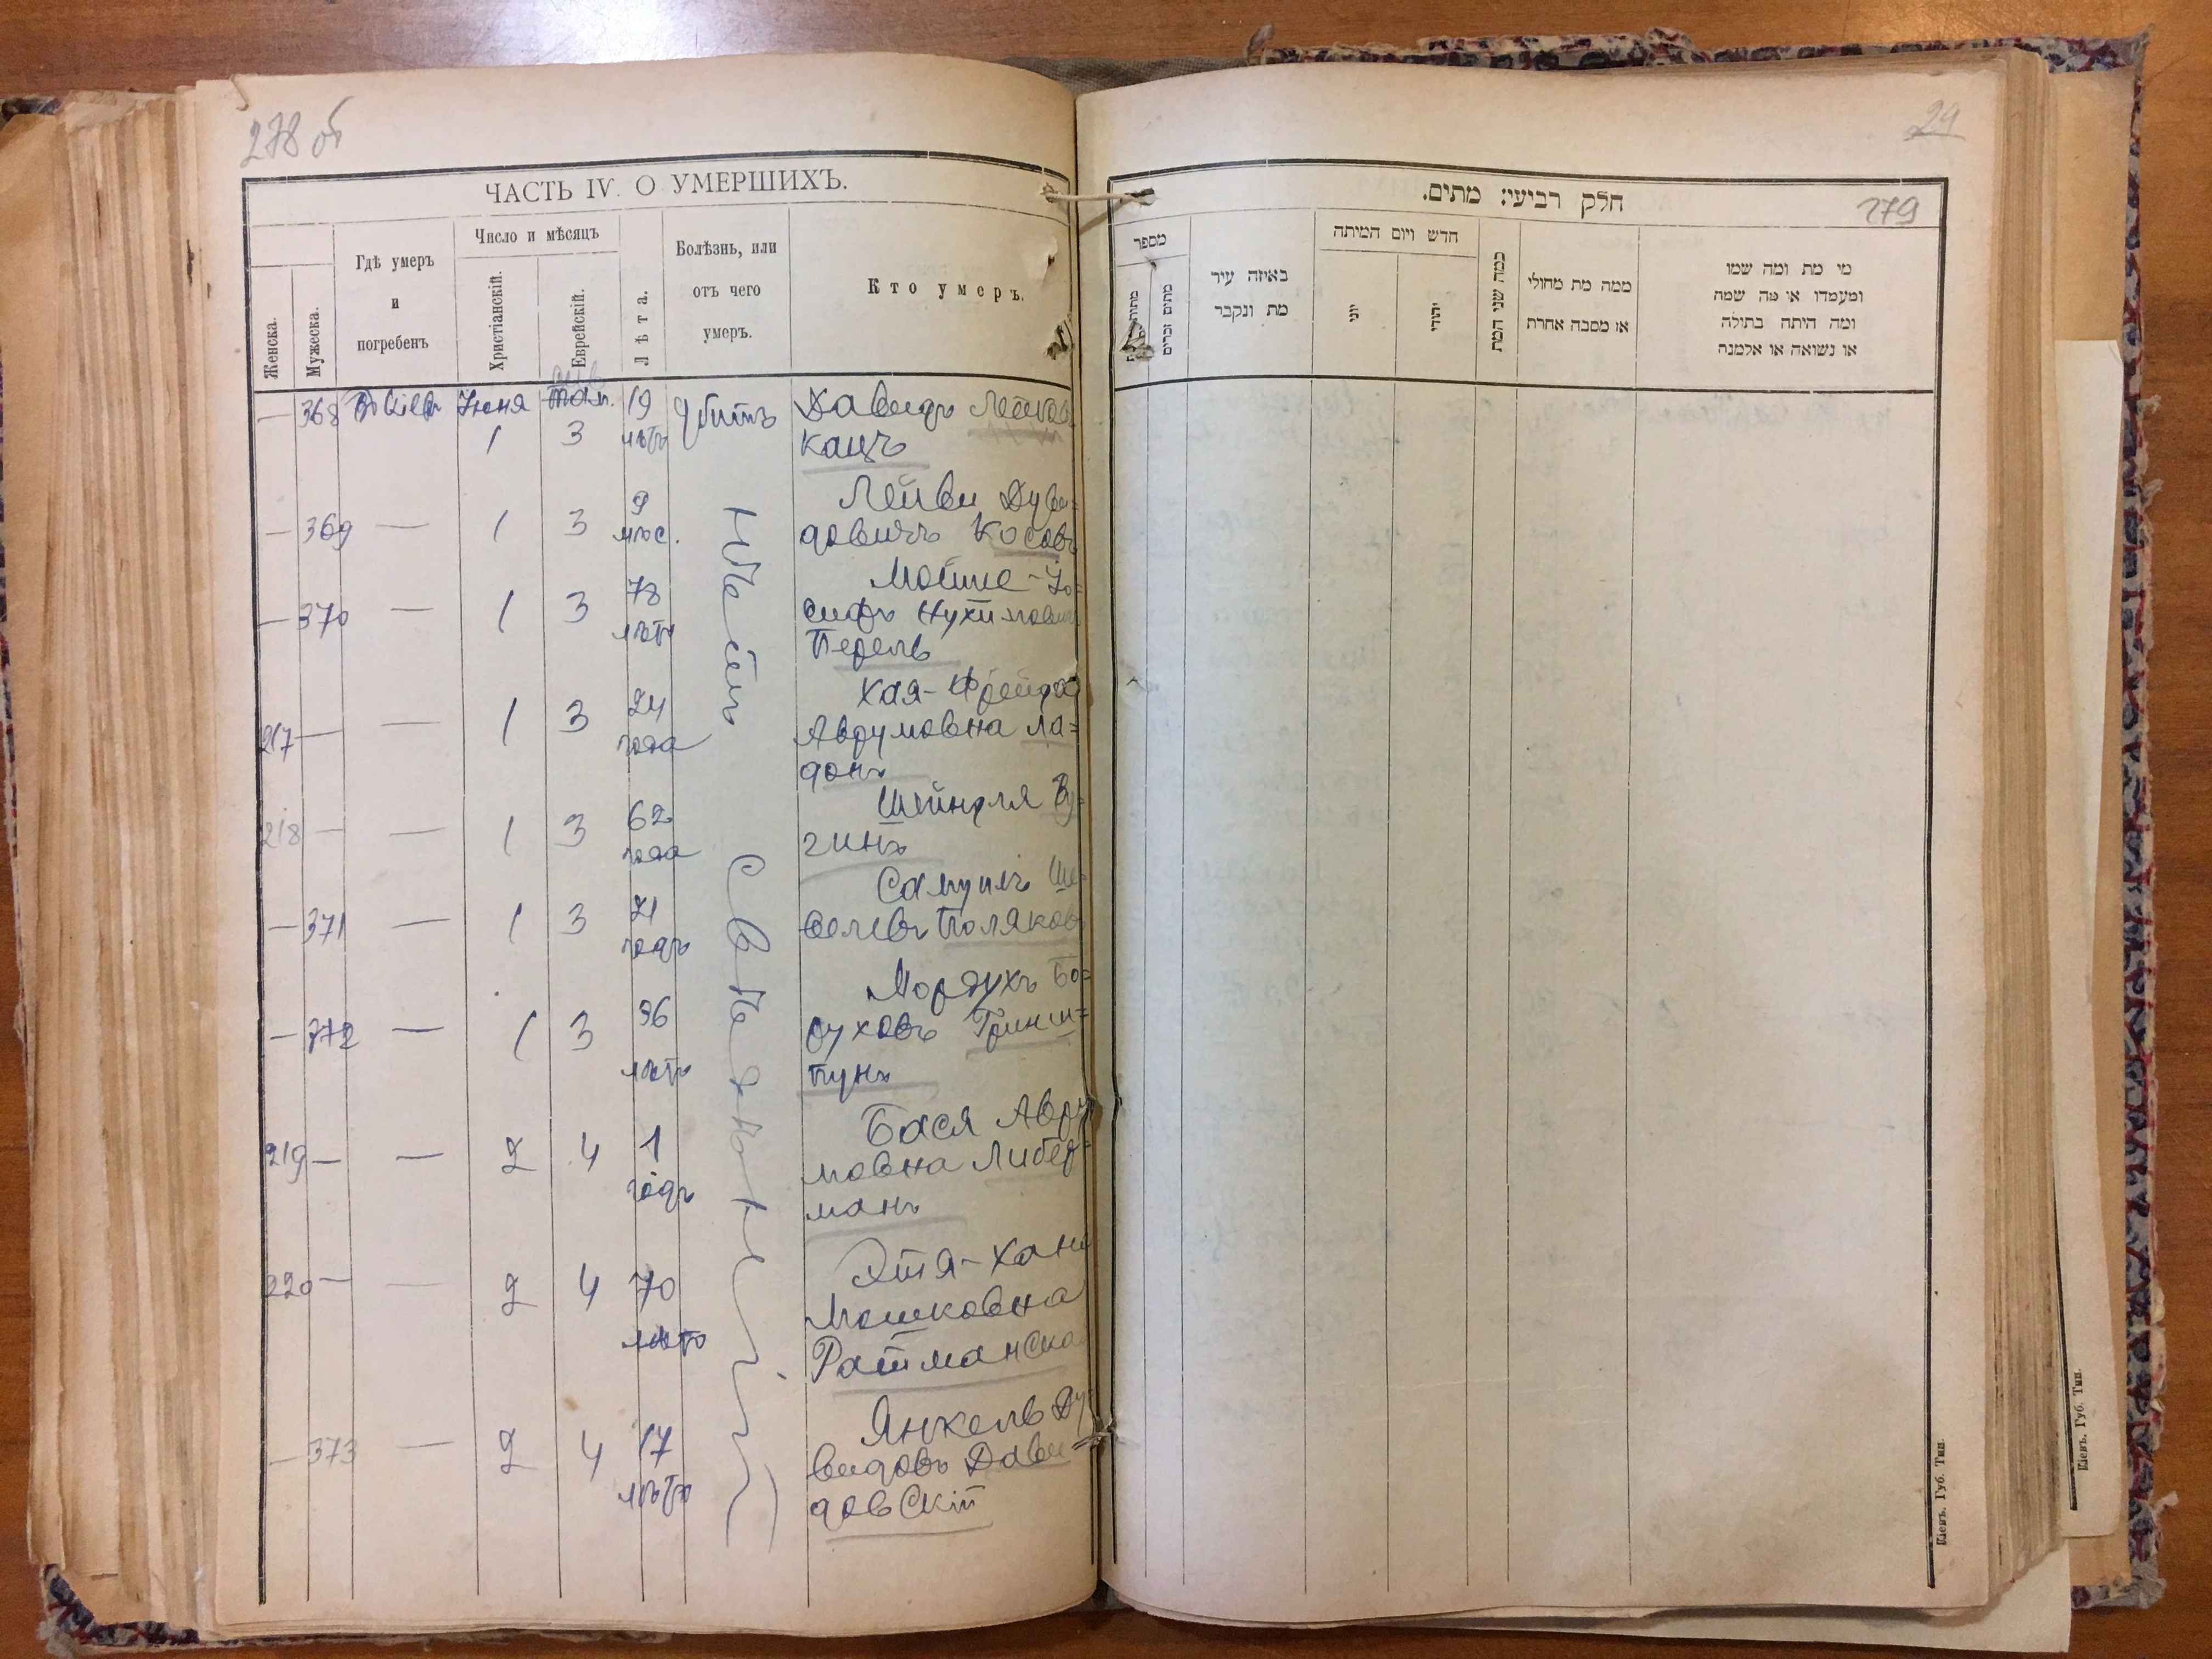 278 об
ЧАСТЬ IV. О УМЕРШИХЪ.
Женска.
Мужеска.
Гдѣ умеръ
и
погребенъ
Число и мѣсяцъ
Христіанскій.
Еврейскій.
Лѣта.
Болѣзнь, или
отъ чего
умеръ.
Кто умеръ.
— 368 Въ Кіевѣ Іюня 19 убитъ Давидъ
1 3 лѣтъ Кацъ
Лейви Дуви=
— 369 — 1 3 9 мѣс. довичъ Косовъ
Мойше-Іо=
— 370 — 1 3 78 лѣтъ сифъ Нухимовичъ
Перель
Хая-Фрейда
217 — — 1 3 24 года Аврумовна Ла=
донъ
Шейндля
218 — — 1 3 62 года гинъ
Самуилъ Ше=
— 371 — 1 3 21 годъ велевъ Поляковъ
Мордухъ Бо=
— 372 — 1 3 96 лѣтъ руховъ Гринш=
пунъ
Бася Авру
219 — — 2 4 1 годъ мовна Либер=
манъ
Этя-Хана
220 — — 2 4 70 лѣтъ Мошковна
Ратманска
Янкель Ду
— 373 — 2 4 17 лѣтъ видовъ Дави=
довскій
Нѣтъ свѣдѣній
24
279
חלק רביעי: מתים.
מספר
מתים זכרים
באיזה עיר
מת ונקבר
חדש ויום המיתה
יוני
יהודי
כמה שני המת
ממה מת מחולי
או מסבה אחרת
מי מת ומה שמו
ומעמדו או מה שמה
ומה היתה בתולה
או נשואה או אלמנה
Кіевъ. Губ. Тип.
Кіевъ. Губ. Тип.